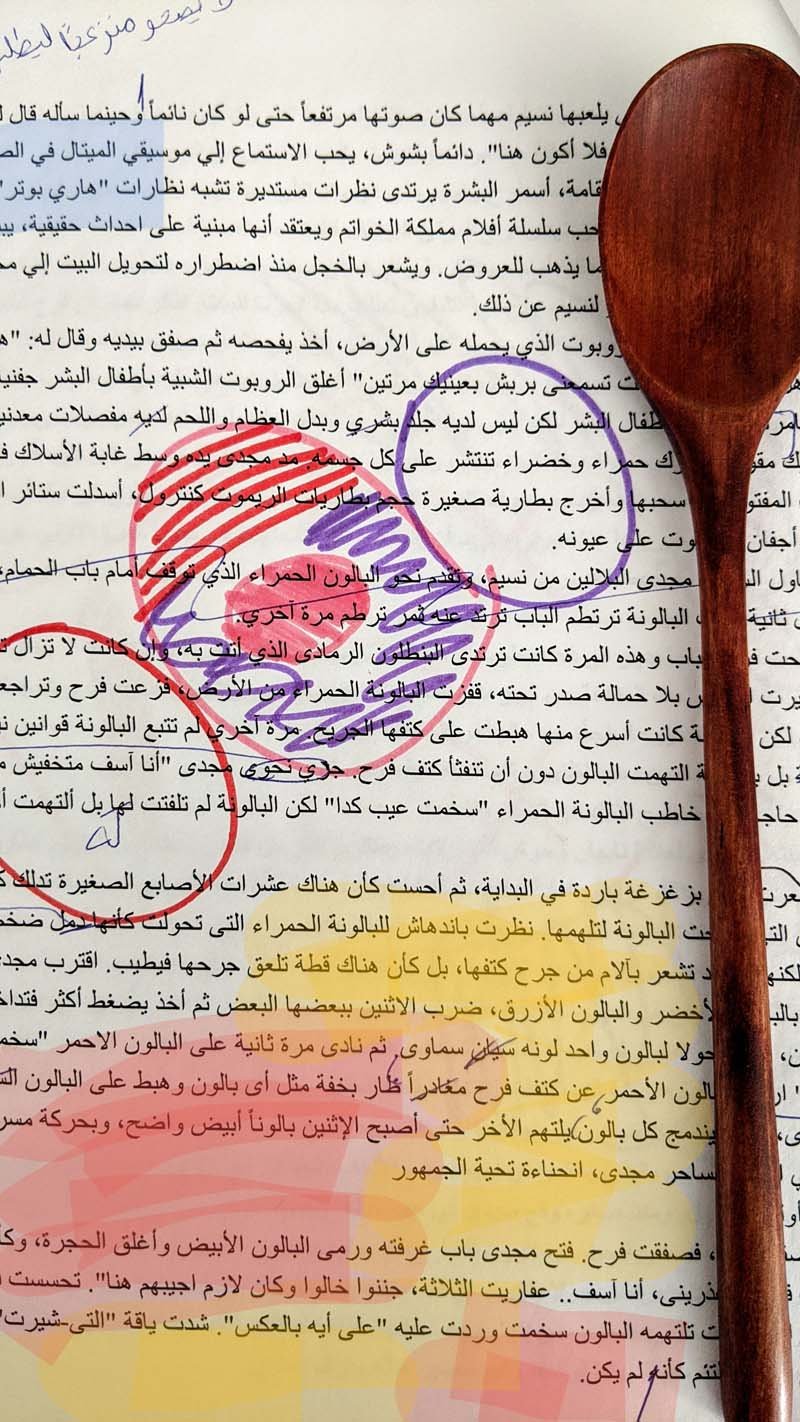 لا يصحو منزعجاً ليطلب
يلعبها نسيم مهما كان صوتها مرتفعاً حتى لو كان نائماً وحينما سأله قال
فلا أكون هنا". دائماً بشوش، يحب الاستماع إلي موسيقي الميتال في
قامة، أسمر البشرة يرتدى نظرات مستديرة تشبه نظارات "هاري بوتر"
حب سلسلة أفلام مملكة الخواتم ويعتقد أنها مبنية على احداث حقيقية،
ما يذهب للعروض. ويشعر بالخجل منذ اضطراره لتحويل البيت إلي
لنسيم عن ذلك.
روبوت الذي يحمله على الأرض، أخذ يفحصه ثم صفق بيديه وقال له:
ت تسمعنى بربش بعينيك مرتين" أغلق الروبوت الشبية بأطفال البشر
طفال البشر لكن ليس لديه جلد بشري وبدل العظام واللحم لديه مفصلات
حمراء وخضراء تنتشر على كل جسمه. مد مجدى يده وسط غابة الأسلاك
المفتو سحبها وأخرج بطارية صغيرة حجم بطاريات الريموت كنترول، أسدلت ستائر
أجفان وت على عيونه.
مجدى البلالين من نسيم، وتقدم نحو البالون الحمراء الذي توقف أمام باب الحمام،
ثانية البالونة ترتطم الباب ترتد عنه ثمر ترطم مرة آخري.
باب وهذه المرة كانت ترتدى البنطلون الرمادى الذي أتت به، وإن كانت لا تزال
بلا حمالة صدر تحته، قفزت البالونة الحمراء من الأرض، فزعت فرح
لكن كانت أسرع منها هبطت على كتفها الجريح. مرة آخري لم تتبع البالونة قوانين
بل التهمت البالون دون أن تنفثأ كتف فرح. جري نحوى مجدى "أنا آسف متخفيش
خاطب البالونة الحمراء "سخمت عيب كدا" لكن البالونة لم تلفتت لها بل ألتهمت
له
بزغزغة باردة في البداية، ثم أحست كأن هناك عشرات الأصابع الصغيرة تدلك
حت البالونة لتلهمها. نظرت باندهاش للبالونة الحمراء التى تحولت كأنها دمل
د تشعر بآلام من جرح كتفها، بل كأن هناك قطة تلعق جرحها فيطيب. اقترب
لأخضر والبالون الأزرق، ضرب الاثنين ببعضها البعض ثم أخذ يضغط أكثر
حولا لبالون واحد لونه سيان سماوى، ثم نادى مرة ثانية على البالون الاحمر
الون الأحمر عن كتف فرح مغادراً طار بخفة مثل أى بالون وهبط على البالون
يندمج كل بالون يلتهم الأخر حتى أصبح الإثنين بالوناً أبيض واضح، وبحركة
ساحر مجدى، انحناءة تحية الجمهور
، فصفقت فرح. فتح مجدى باب غرفته ورمى البالون الأبيض وأغلق الحجرة،
ذرينى، أنا آسف.. عفاريت الثلاثة، جننوا خالوا وكان لازم اجيبهم هنا". تحسست
ت تلتهمه البالون سخمت وردت عليه "على أيه بالعكس". شدت ياقة "التى-شيرت"
لتئم كأنه لم يكن.